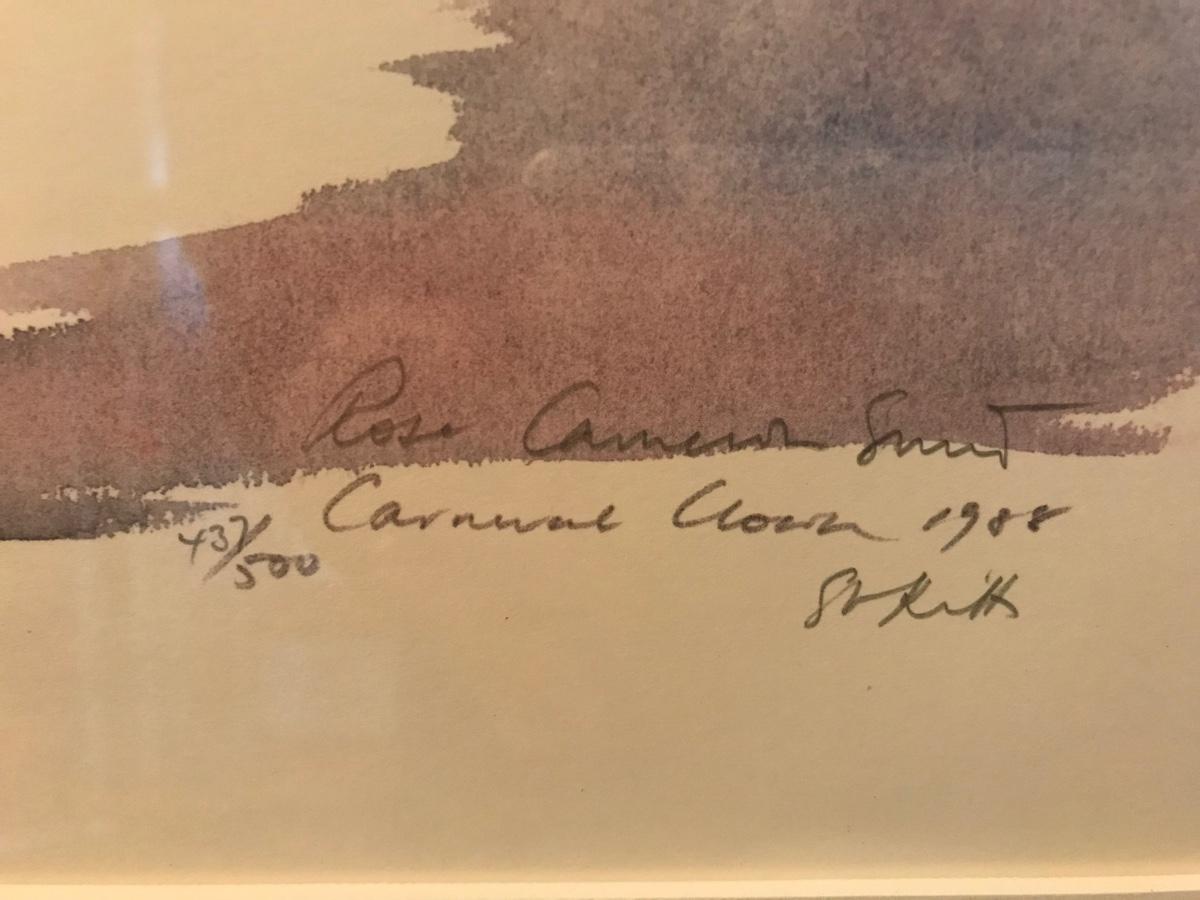 Rose Cameron Smith
Carnival Clown 1988
437/500
St Kitts